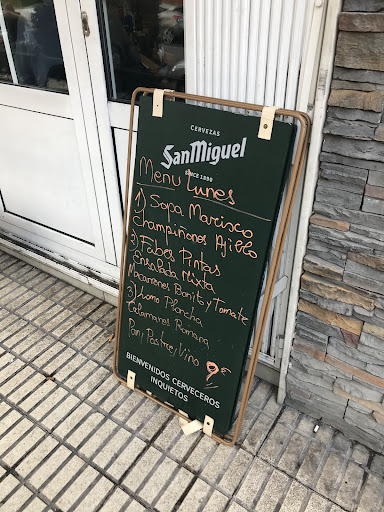 CERVEZAS
SanMiguel
SINCE 1890
Menu Lunes
1) Sopa Marisco
Champiñones Ajillo
2) Fabes Pintas
Ensalada Mixta
Macarrones Bonito y Tomate
3) Lomo Plancha
Calamares Romana
Pan, Postre, y Vino 9€
BIENVENIDOS CERVECEROS
INQUIETOS